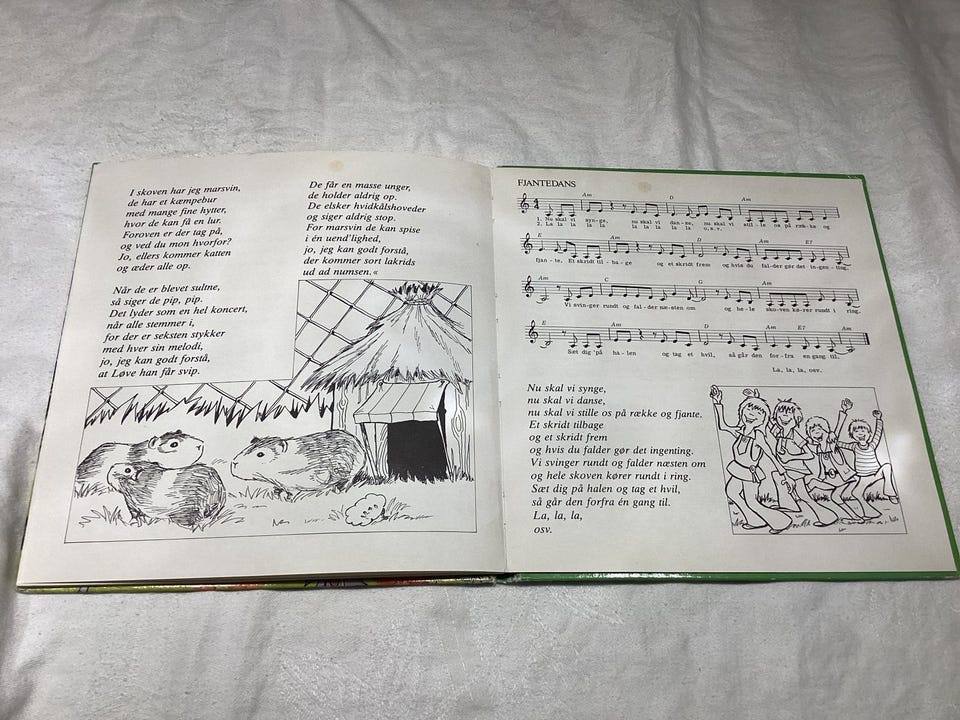 I skoven har jeg marsvin,
de har et kæmpebur
med mange fine hytter,
hvor de kan få en lur.
Foroven er der tag på,
og ved du mon hvorfor?
Jo, ellers kommer katten
og æder alle op.
Når de er blevet sultne,
så siger de pip, pip.
Det lyder som en hel koncert,
når alle stemmer i,
for der er seksten stykker
med hver sin melodi,
jo, jeg kan godt forstå,
at Løve han får svip.
De får en masse unger,
de holder aldrig op.
De elsker hvidkålshoveder
og siger aldrig stop.
For marsvin de kan spise
i én uend'lighed,
jo, jeg kan godt forstå,
der kommer sort lakrids
ud ad numsen.«
FJANTEDANS
Am D Am
1. Nu skal vi syn-ge, nu skal vi dan-se, nu skal vi stil-le os på ræk-ke og
2. La la la la la la la la la la o.s.v.
E Am D Am E
fjan-te. Et skridt til-ba-ge og et skridt frem og hvis du fal-der gør det in-gen-ting.
Am C G Am
Vi svin-ger rundt og fal-der næ-sten om og he-le sko-ven kø-rer rundt i ring.
E Am D Am E7 Am
Sæt dig på ha-len og tag et hvil, så går den for-fra en gang til.
La, la, la, osv.
Nu skal vi synge,
nu skal vi danse,
nu skal vi stille os på række og fjante.
Et skridt tilbage
og et skridt frem
og hvis du falder gør det ingenting.
Vi svinger rundt og falder næsten om
og hele skoven kører rundt i ring.
Sæt dig på halen og tag et hvil,
så går den forfra én gang til.
La, la, la,
osv.